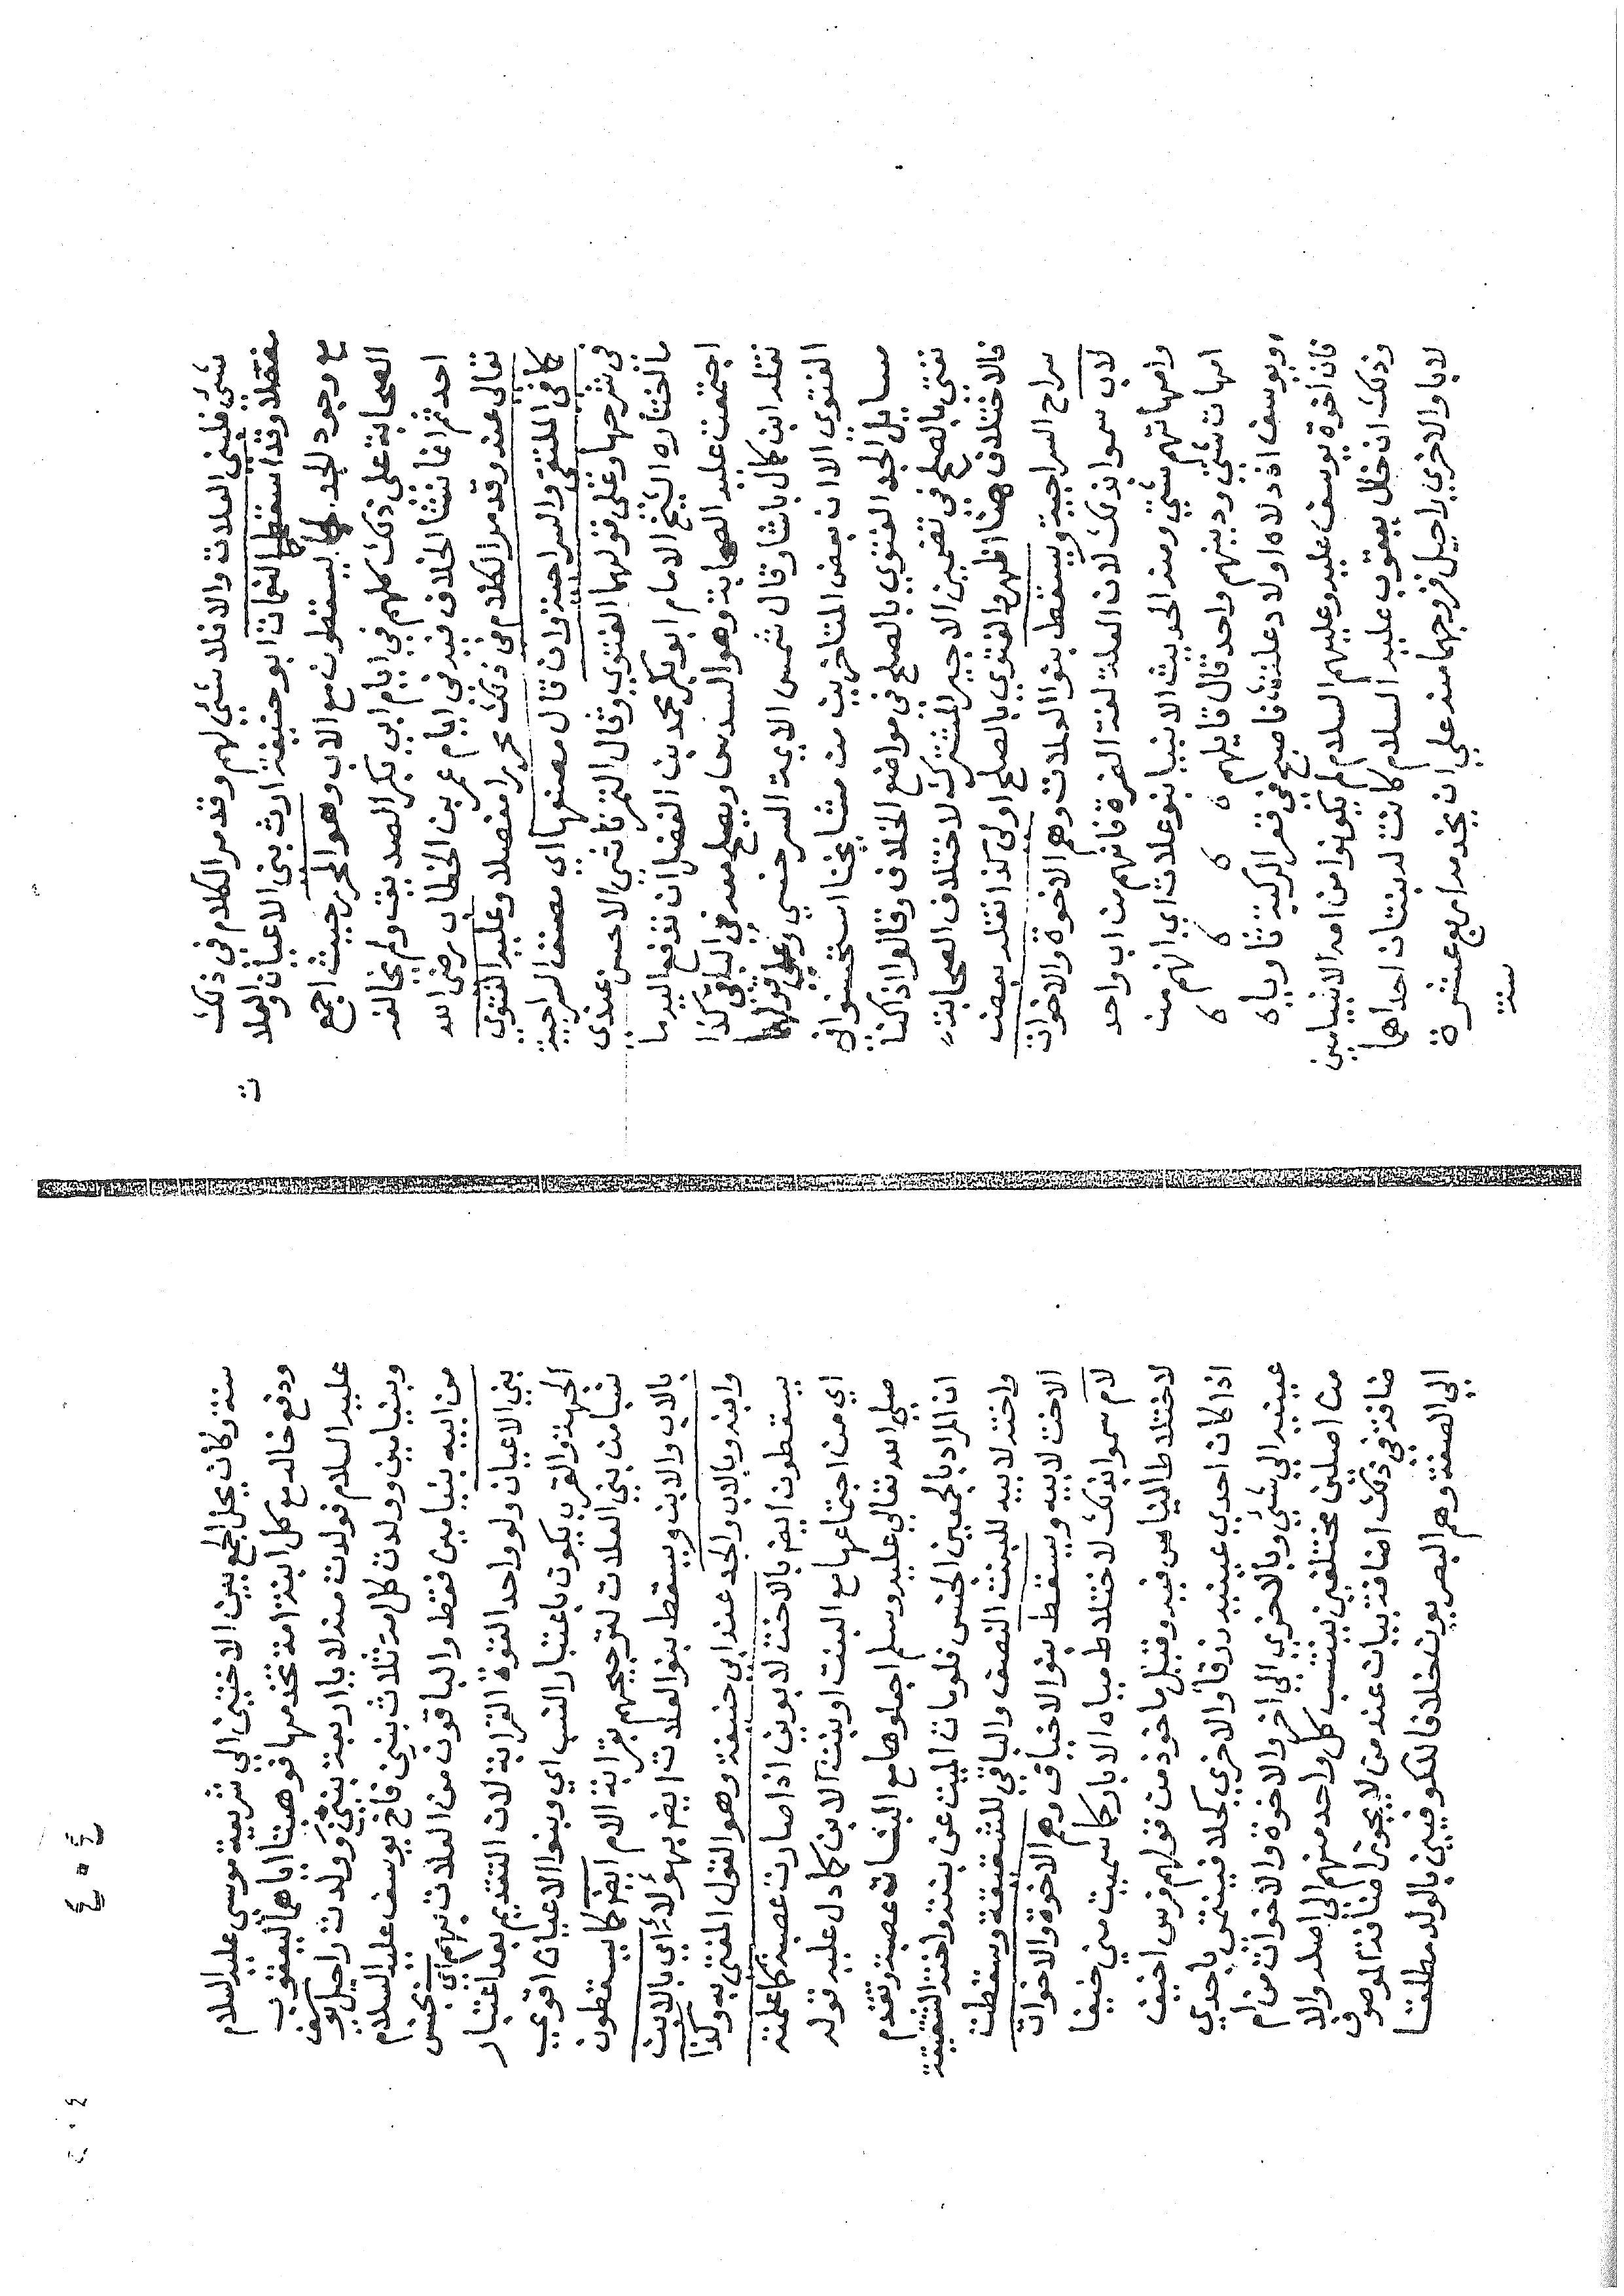 شئ فلبني العلات والا فلا شئ لهم وقد مر الكلام في ذلك
مفصلا وقد اسقط النعمان ابو حنيفة ارث بني الاعيان والعلا
ت
مع وجود الجد كما يسقطون مع الاب وهو المحرر حيث اجمع
الصحابة على ذلك كلهم في ايام ابي بكر الصديق ولم يخالفه
احد ثم انما نشا الخلاف فيه في ايام عمر بن الخطاب رضي الله
تعالى عنه وقد مر الكلام في ذلك محررا مفصلا وعليه الفتوي
كما في الملتقى والسراجية وان قال مصنفها اي مصنف السراجية
في شرحها وعلى قولهما الفتوي وقال التمرتاشي الاحسن عندي
ما اختاره الشيخ الامام ابو بكر محمد بن الفضل ان تدفع اليه ما
اجتمعت عليه الصحابة وهو السدس ويصلح معه في الباقي كذا
نقله ابن كمال باشا وقال شمس الايمة السرخسي وعلى قولهما
الفتوي الا ان بعض المتاخرين من مشايخنا استحسنوا في
مسايل الجد الفتوي بالصلح في مواضع الخلاف وقالوا اذا كنا
نفتي بالصلح في تضمين الاجير المشترك لاختلاف الصحابة
فالاختلاف هنا اظهر والفتوي بالصلح اولى كذا نقله بعض
شراح السراجية ويسقط بنوا العلات وهم الاخوة والاخوات
لاب سموا بذلك لان العلة لغة الضرة فانهم من اب واحد
وامهاتهم شتي ومنه الحديث الانبيا بنو علات اي انهم من
امهات شتي ودينهم واحد قال قايلهم
ويوسف اذ دلاه اولاد علة فاصبح في قعر الركية ثاويا
فان اخوة يوسف عليه وعليهم السلام لم يكونوا من امه الا بنيامين
وذلك ان خال يعقوب عليه السلام كانت له بنتان احداهما
لايا والاخري راحيل فزوجهما منه على ان يخدمه اربع عشرة
سنة
سنة وكان يحل الجمع بين الاختين الي شريعة موسى عليه السلام
ودفع خاله مع كل ابنة امة تخدمها فوهبتا اياهما ليعقوب
عليه السلام فولدت منه لايا اربعة بنين وولدت راحيل يوسف
وبنيامين وولدت كل امة ثلاث بنين فاخ يوسف عليه السلام
من ابيه بنيامين فقط والباقون من العلات بهم اي بجنس
بني الاعيان ولو واحد القوة القرابة لان التقديم بعد اعتبار
الجهة والقرب يكون باعتبار النسب اي وبنوا الاعيان اقوي
نسبا من بني العلات لترجيحهم بقرابة الام ايضا كما يسقطون
بالاب والابن ويسقط بنوا العلات ايضا بهؤلاء اي بالابن
وابنه وبالاب والجد عند ابي حنيفة وهو القول المفتي به وكذا
يسقطون ايضا بالاخت لابوين اذا صارت عصبة كما علمته
اي من اجتماعها مع البنت او بنت الابن كما دل عليه قوله
صلي الله تعالي عليه وسلم اجعلوها مع البنات عصبة وتقدم
ان المراد بالجمعين الجنس فلو مات الميت عن بنته واخته الشقيقة
واخته لابيه للبنت النصف والباقي للشقيقة وسقطت
الاخت لابيه ويسقط بنوا الاخياف وهم الاخوة والاخوات
لام سموا بذلك لاختلاط مياه الاباء كما سميت مني خيفا
لاختلاط الناس فيه وقيل ماخوذ من قولهم فرس اخيف
اذا كان احدي عينيه زرقا والاخري كحلا فينتمي باحدي
عينيه الي شئ وبالاخري الي اخر والاخوة والاخوات من ام
من اصلين مختلفين ينتسب كل واحد منهم الي اصله والا
ضافة في ذلك اضافة بيان عند من لا يجوز اضافة الموصوف
الي الصفة وهم البصريون خلافا للكوفيين بالولد مطلقا